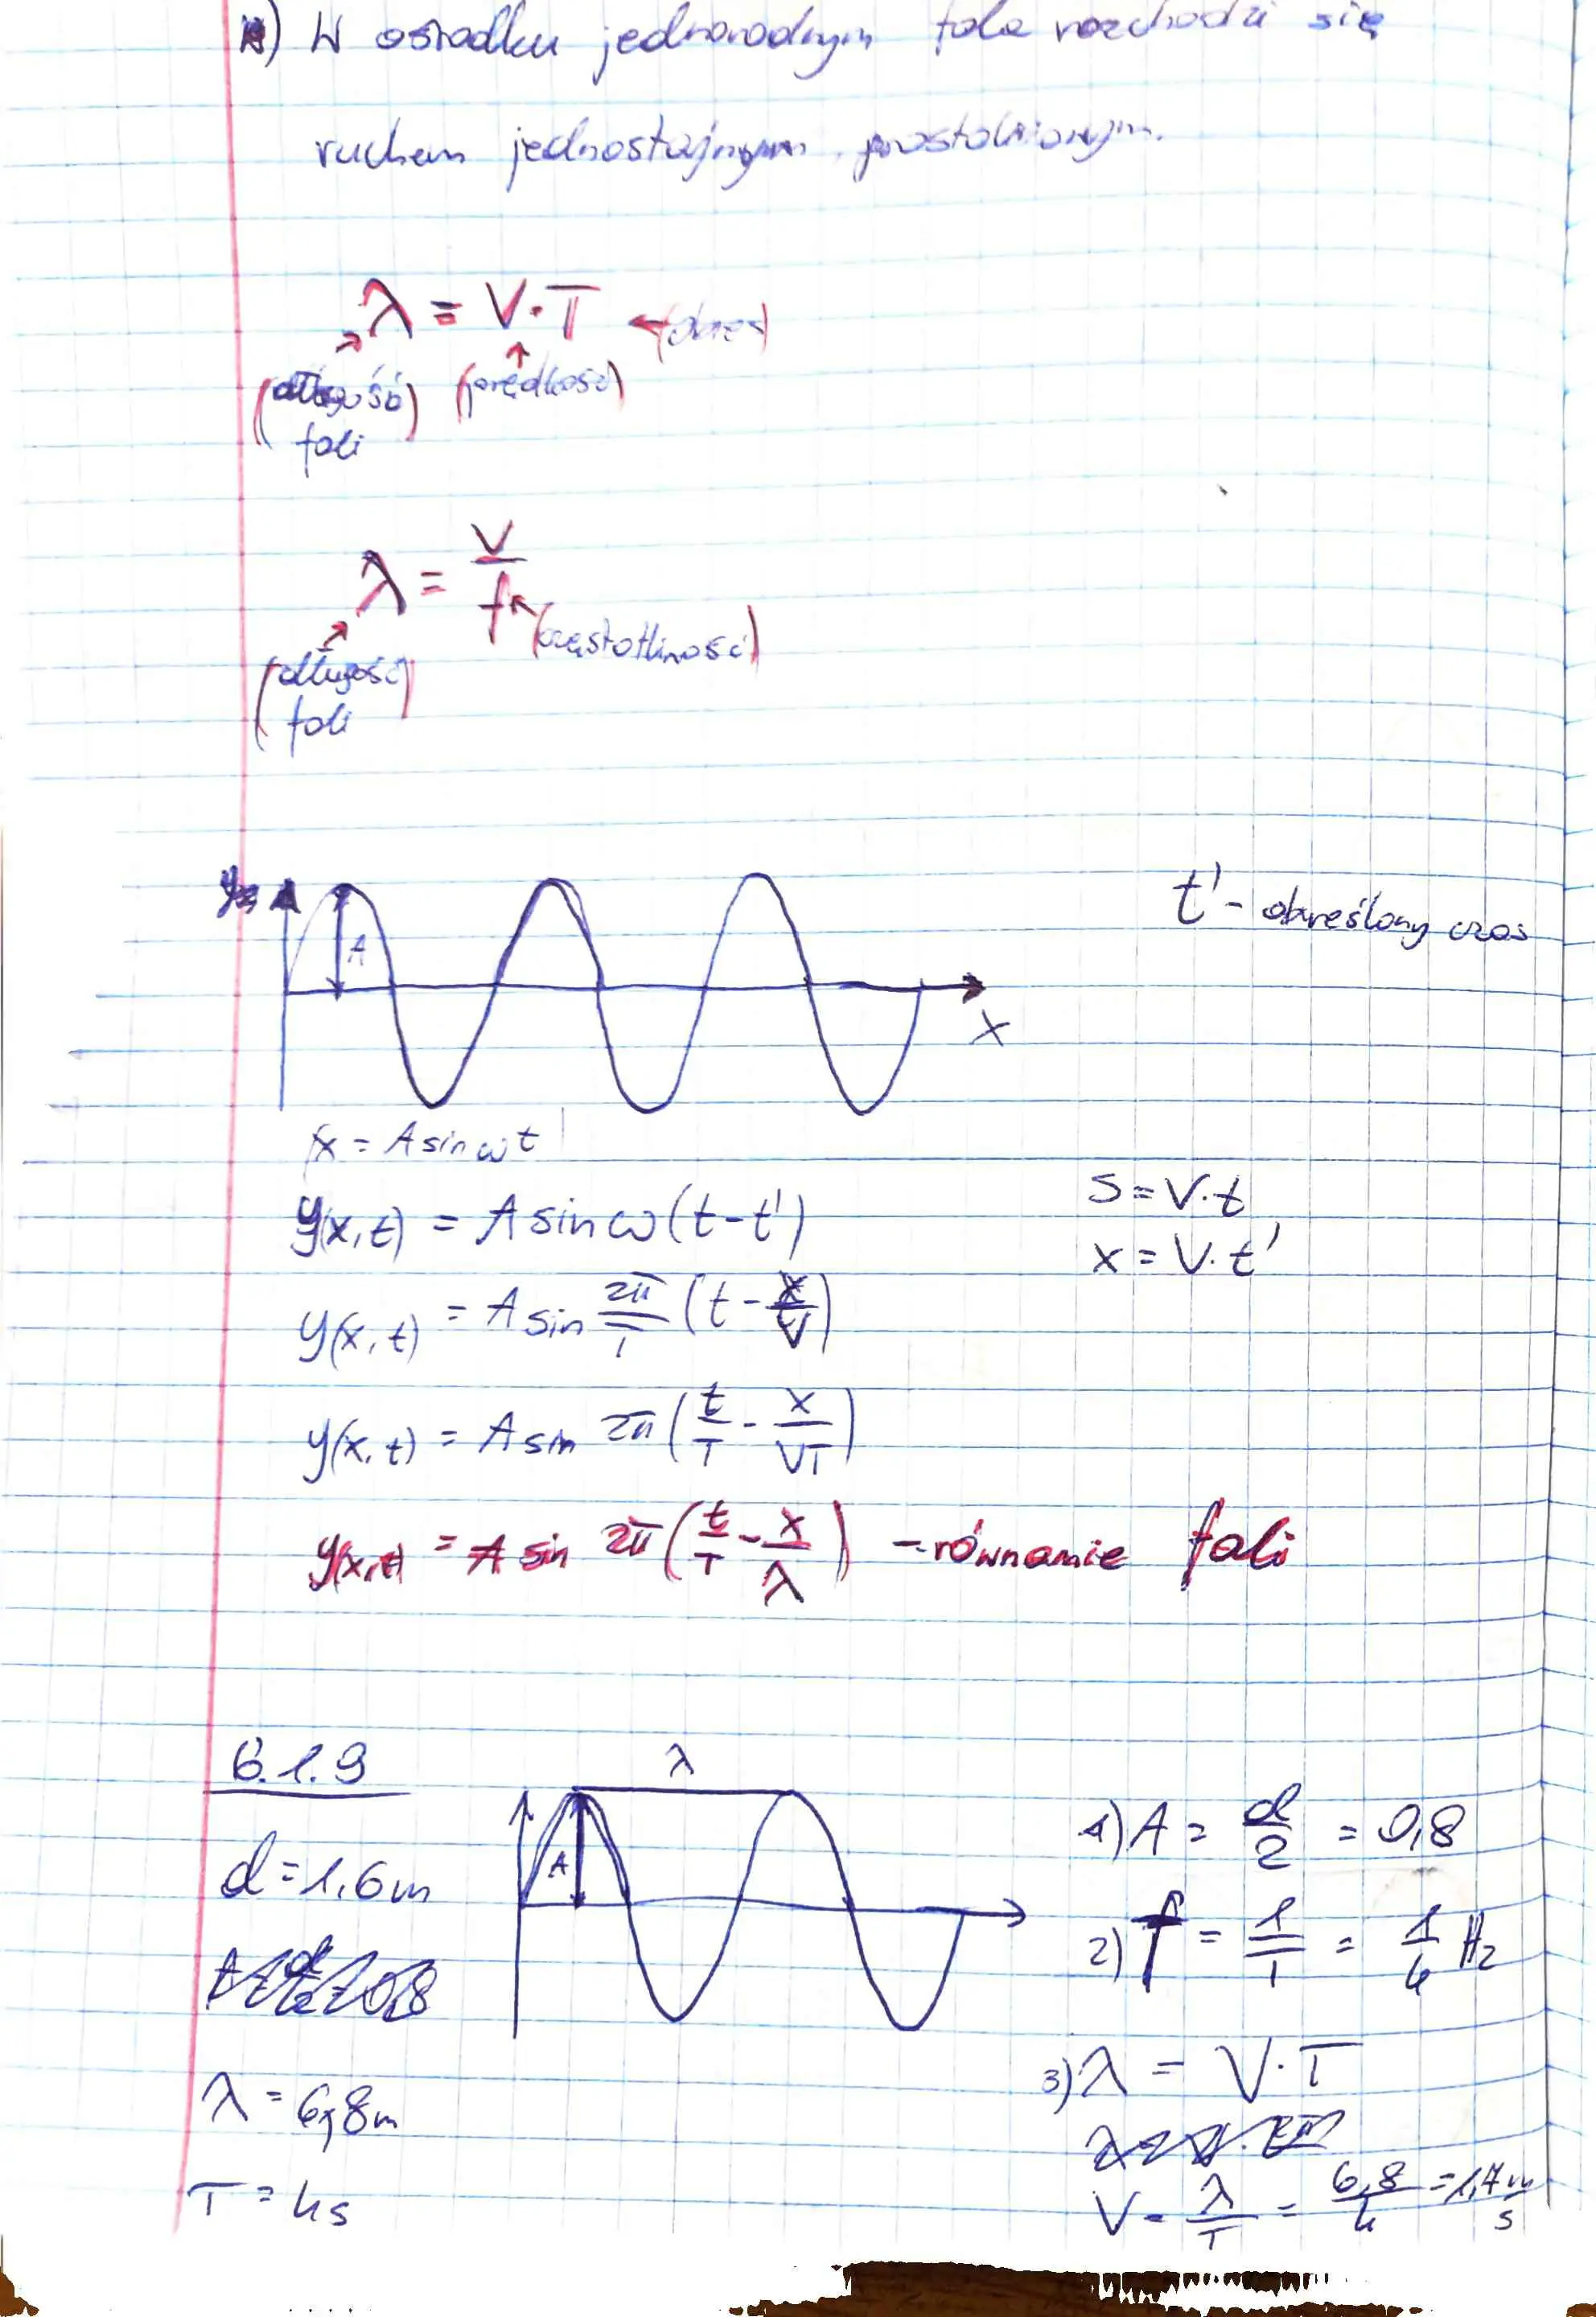 ) W ośrodku jednorodnym fala rozchodzi się
ruchem jednostajnym prostoliniowym.
λ = V·T ← (okres)
(długość fali) (prędkość)
λ = V/f (częstotliwość)
(długość fali)
A
X
t' - określony czas
x = A sin ωt
y(x,t) = A sin ω(t-t')
s = V·t
x = V·t'
y(x,t) = A sin 2π/T (t - x/V)
y(x,t) = A sin 2π (t/T - x/VT)
y(x,t) = A sin 2π (t/T - x/λ) - równanie fali
6.1.9
λ
A
d = 1,6m
λ = 6,8m
T = 4s
1) A = d/2 = 0,8
2) f = 1/T = 1/4 Hz
3) λ = V·T
V = λ/T = 6,8/4 = 1,7 m/s